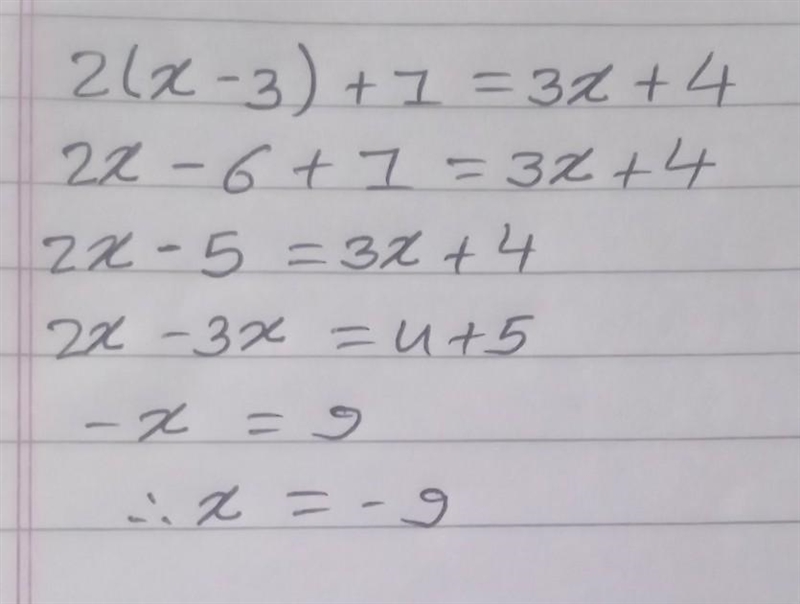 2(x - 3) + 1 = 3x + 4
2x - 6 + 1 = 3x + 4
2x - 5 = 3x + 4
2x - 3x = 4 + 5
- x = 9
∴ x = - 9